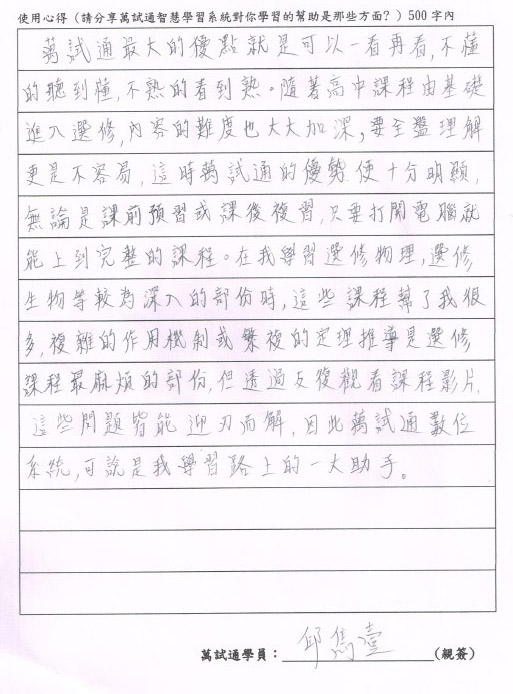 使用心得（請分享萬試通智慧學習系統對你學習的幫助是那些方面？）500字內
萬試通最大的優點就是可以一看再看,不懂
的聽到懂,不熟的看到熟。隨著高中課程由基礎
進入選修,內容的難度也大大加深,要全盤理解
更是不容易,這時萬試通的優勢便十分明顯,
無論是課前預習或課後複習,只要打開電腦就
能上到完整的課程。在我學習選修物理,選修
生物等較為深入的部份時,這些課程幫了我很
多,複雜的作用機制或繁複的定理推導是選修
課程最麻煩的部份,但透過反復觀看課程影片,
這些問題皆能迎刃而解,因此萬試通數位
系統,可說是我學習路上的一大助手。
萬試通學員：邱雋(親簽)